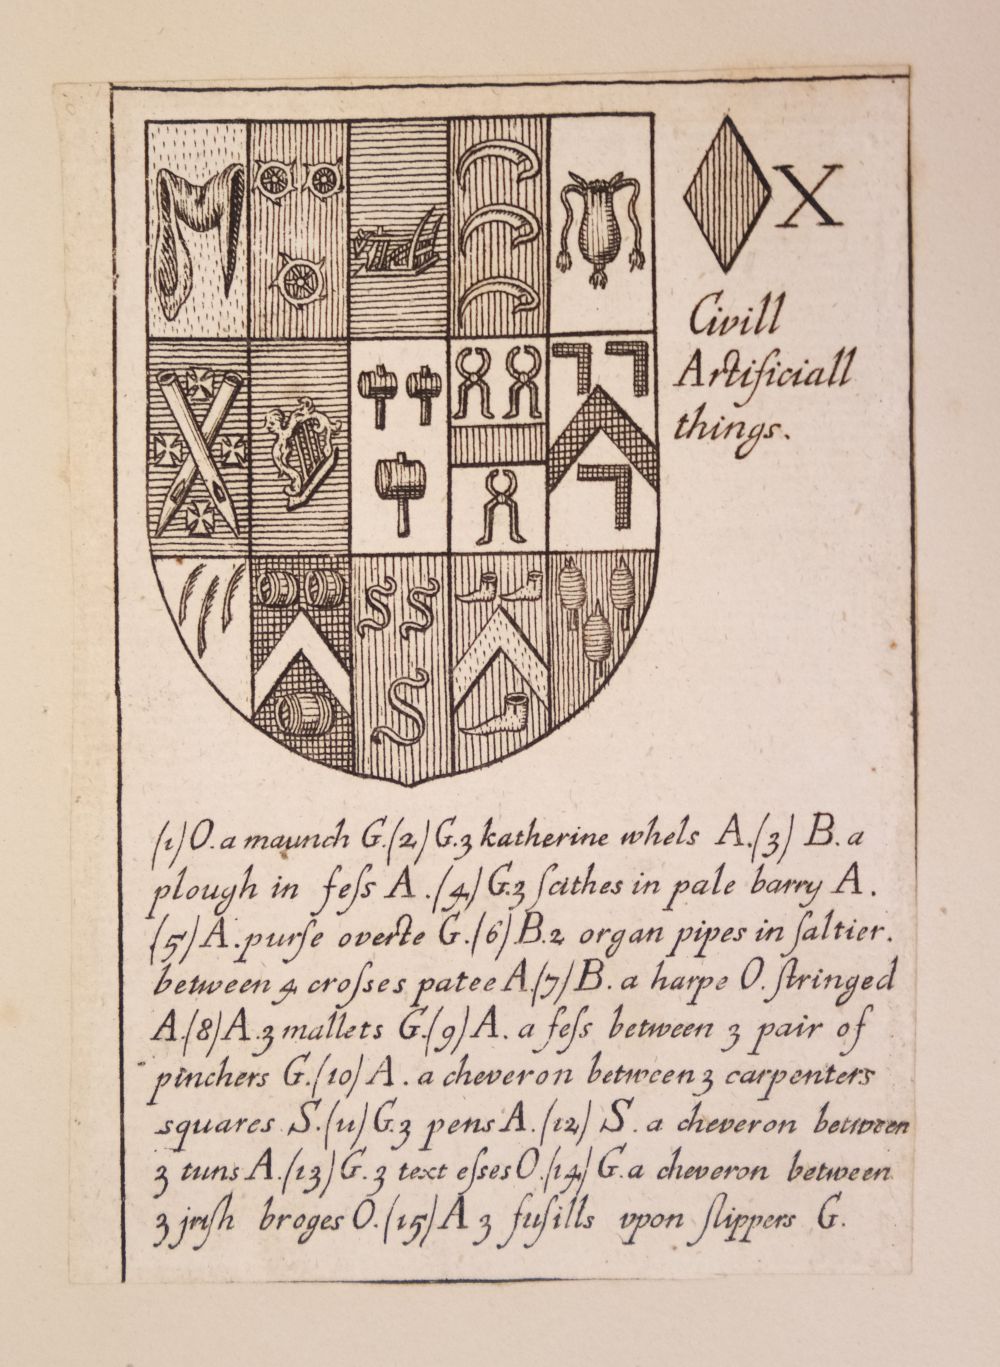 X
Civill
Artificiall
things.
(1) O. a maunch G. (2) G. 3 katherine whels A. (3) B. a
plough in feſs A. (4) G. 3 ſcithes in pale barry A.
(5) A. purſe overte G. (6) B. 2 organ pipes in ſaltier.
between 4 croſses patee A. (7) B. a harpe O. ſtringed
A. (8) A. 3 mallets G. (9) A. a feſs between 3 pair of
pinchers G. (10) A. a cheveron between 3 carpenters
squares S. (11) G. 3 pens A. (12) S. a cheveron between
3 tuns A. (13) G. 3 text eſses O. (14) G. a cheveron between
3 jriſh broges O. (15) A 3 fuſills vpon ſlippers G.